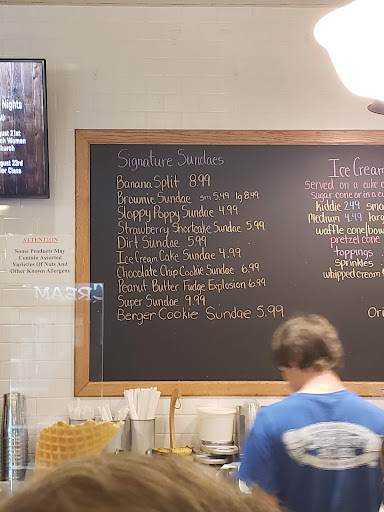 Nights
August 21st
Women
Church
August 23rd
Class
ATTENTION
Some Products May
Contain Assorted
Varieties Of Nuts And
Other Known Allergens
CREAM
Signature Sundaes
Banana Split 8.99
Brownie Sundae sm 5.49 lg 8.49
Sloppy Poppy Sundae 4.99
Strawberry Shortcake Sundae 5.99
Dirt Sundae 5.99
Ice Cream Cake Sundae 4.99
Chocolate Chip Cookie Sundae 6.99
Peanut Butter Fudge Explosion 6.99
Super Sundae 9.99
Berger Cookie Sundae 5.99
Ice Cream
Served on a cake c
Sugar cone or in a cu
kiddie 2.49 sma
Medium 4.49 larg
waffle cone/bow
pretzel cone
toppings
sprinkles
whipped cream
Ori